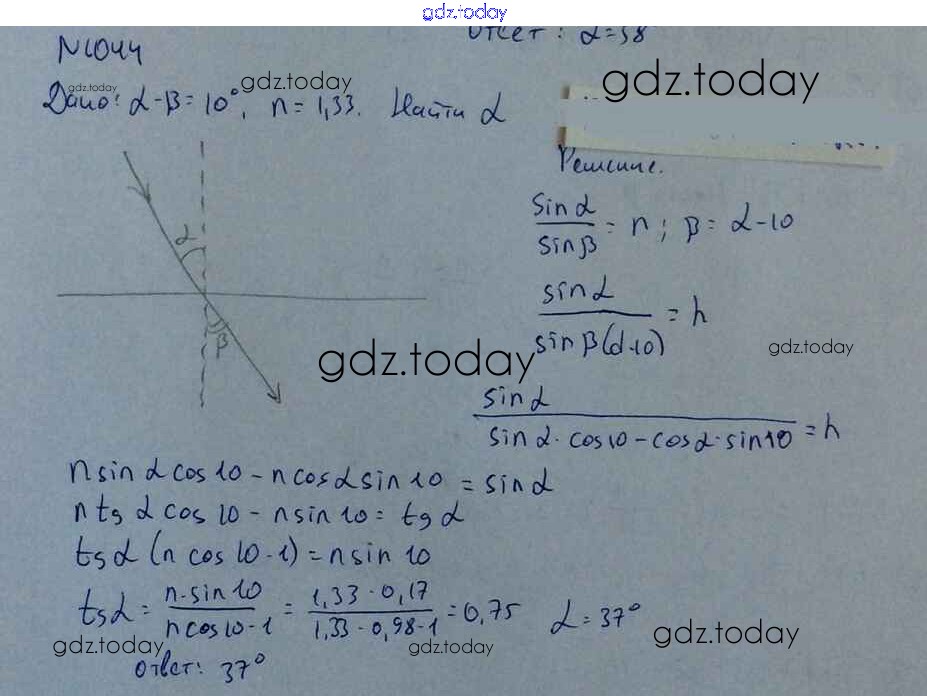 gdz.today
Ответ: α=38
N1044
gdz.today
gdz.today
gdz.today
Дано: α-β=10°, n=1,33. Найти α
Решение.
sinα/sinβ = n; β=α-10
α
sinα/sinβ(α-10) = n
β
gdz.today
gdz.today
sinα/(sinα·cos10-cosα·sin10) = n
n sinα cos10 - n cosα sin10 = sinα
n tgα cos10 - n sin10 = tgα
tgα (n cos10-1) = n sin10
tgα = n·sin10/(n cos10-1) = 1,33·0,17/(1,33·0,98-1) = 0,75 α=37°
gdz.today
gdz.today
gdz.today
Ответ: 37°